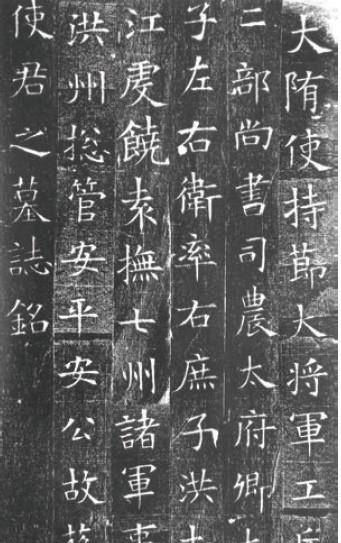 大隋使持節大将軍工
二部尚書司農太府卿
子左右衛率右庶子洪
江虔饒袁撫七州諸軍事
洪州揔管安平安公故
使君之墓誌銘